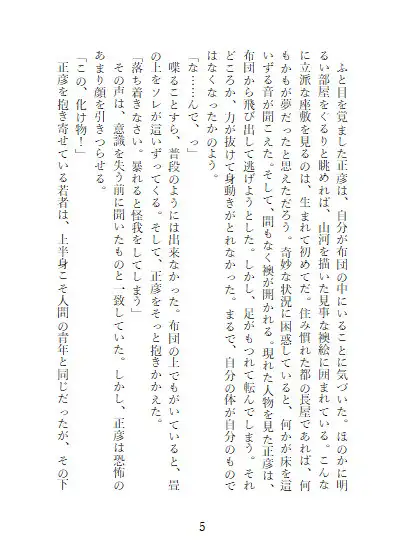 ふと目を覚ました正彦は、自分が布団の中にいることに気づいた。ほのかに明
るい部屋をぐるりと眺めれば、山河を描いた見事な襖絵に囲まれている。こんな
に立派な座敷を見るのは、生まれて初めてだ。住み慣れた都の長屋であれば、何
もかもが夢だったと思えただろう。奇妙な状況に困惑していると、何かが床を這
いずる音が聞こえた。そして、間もなく襖が開かれる。現れた人物を見た正彦は、
布団から飛び出して逃げようとした。しかし、足がもつれて転んでしまう。それ
どころか、力が抜けて身動きがとれなかった。まるで、自分の体が自分のもので
はなくなったかのよう。
「な……んで、っ」
　喋ることすら、普段のようには出来なかった。布団の上でもがいていると、畳
の上をソレが這いずってくる。そして、正彦をそっと抱きかかえた。
「落ち着きなさい。暴れると怪我をしてしまう」
　その声は、意識を失う前に聞いたものと一致していた。しかし、正彦は恐怖の
あまり顔を引きつらせる。
「この、化け物！」
　正彦を抱き寄せている若者は、上半身こそ人間の青年と同じだったが、その下
5